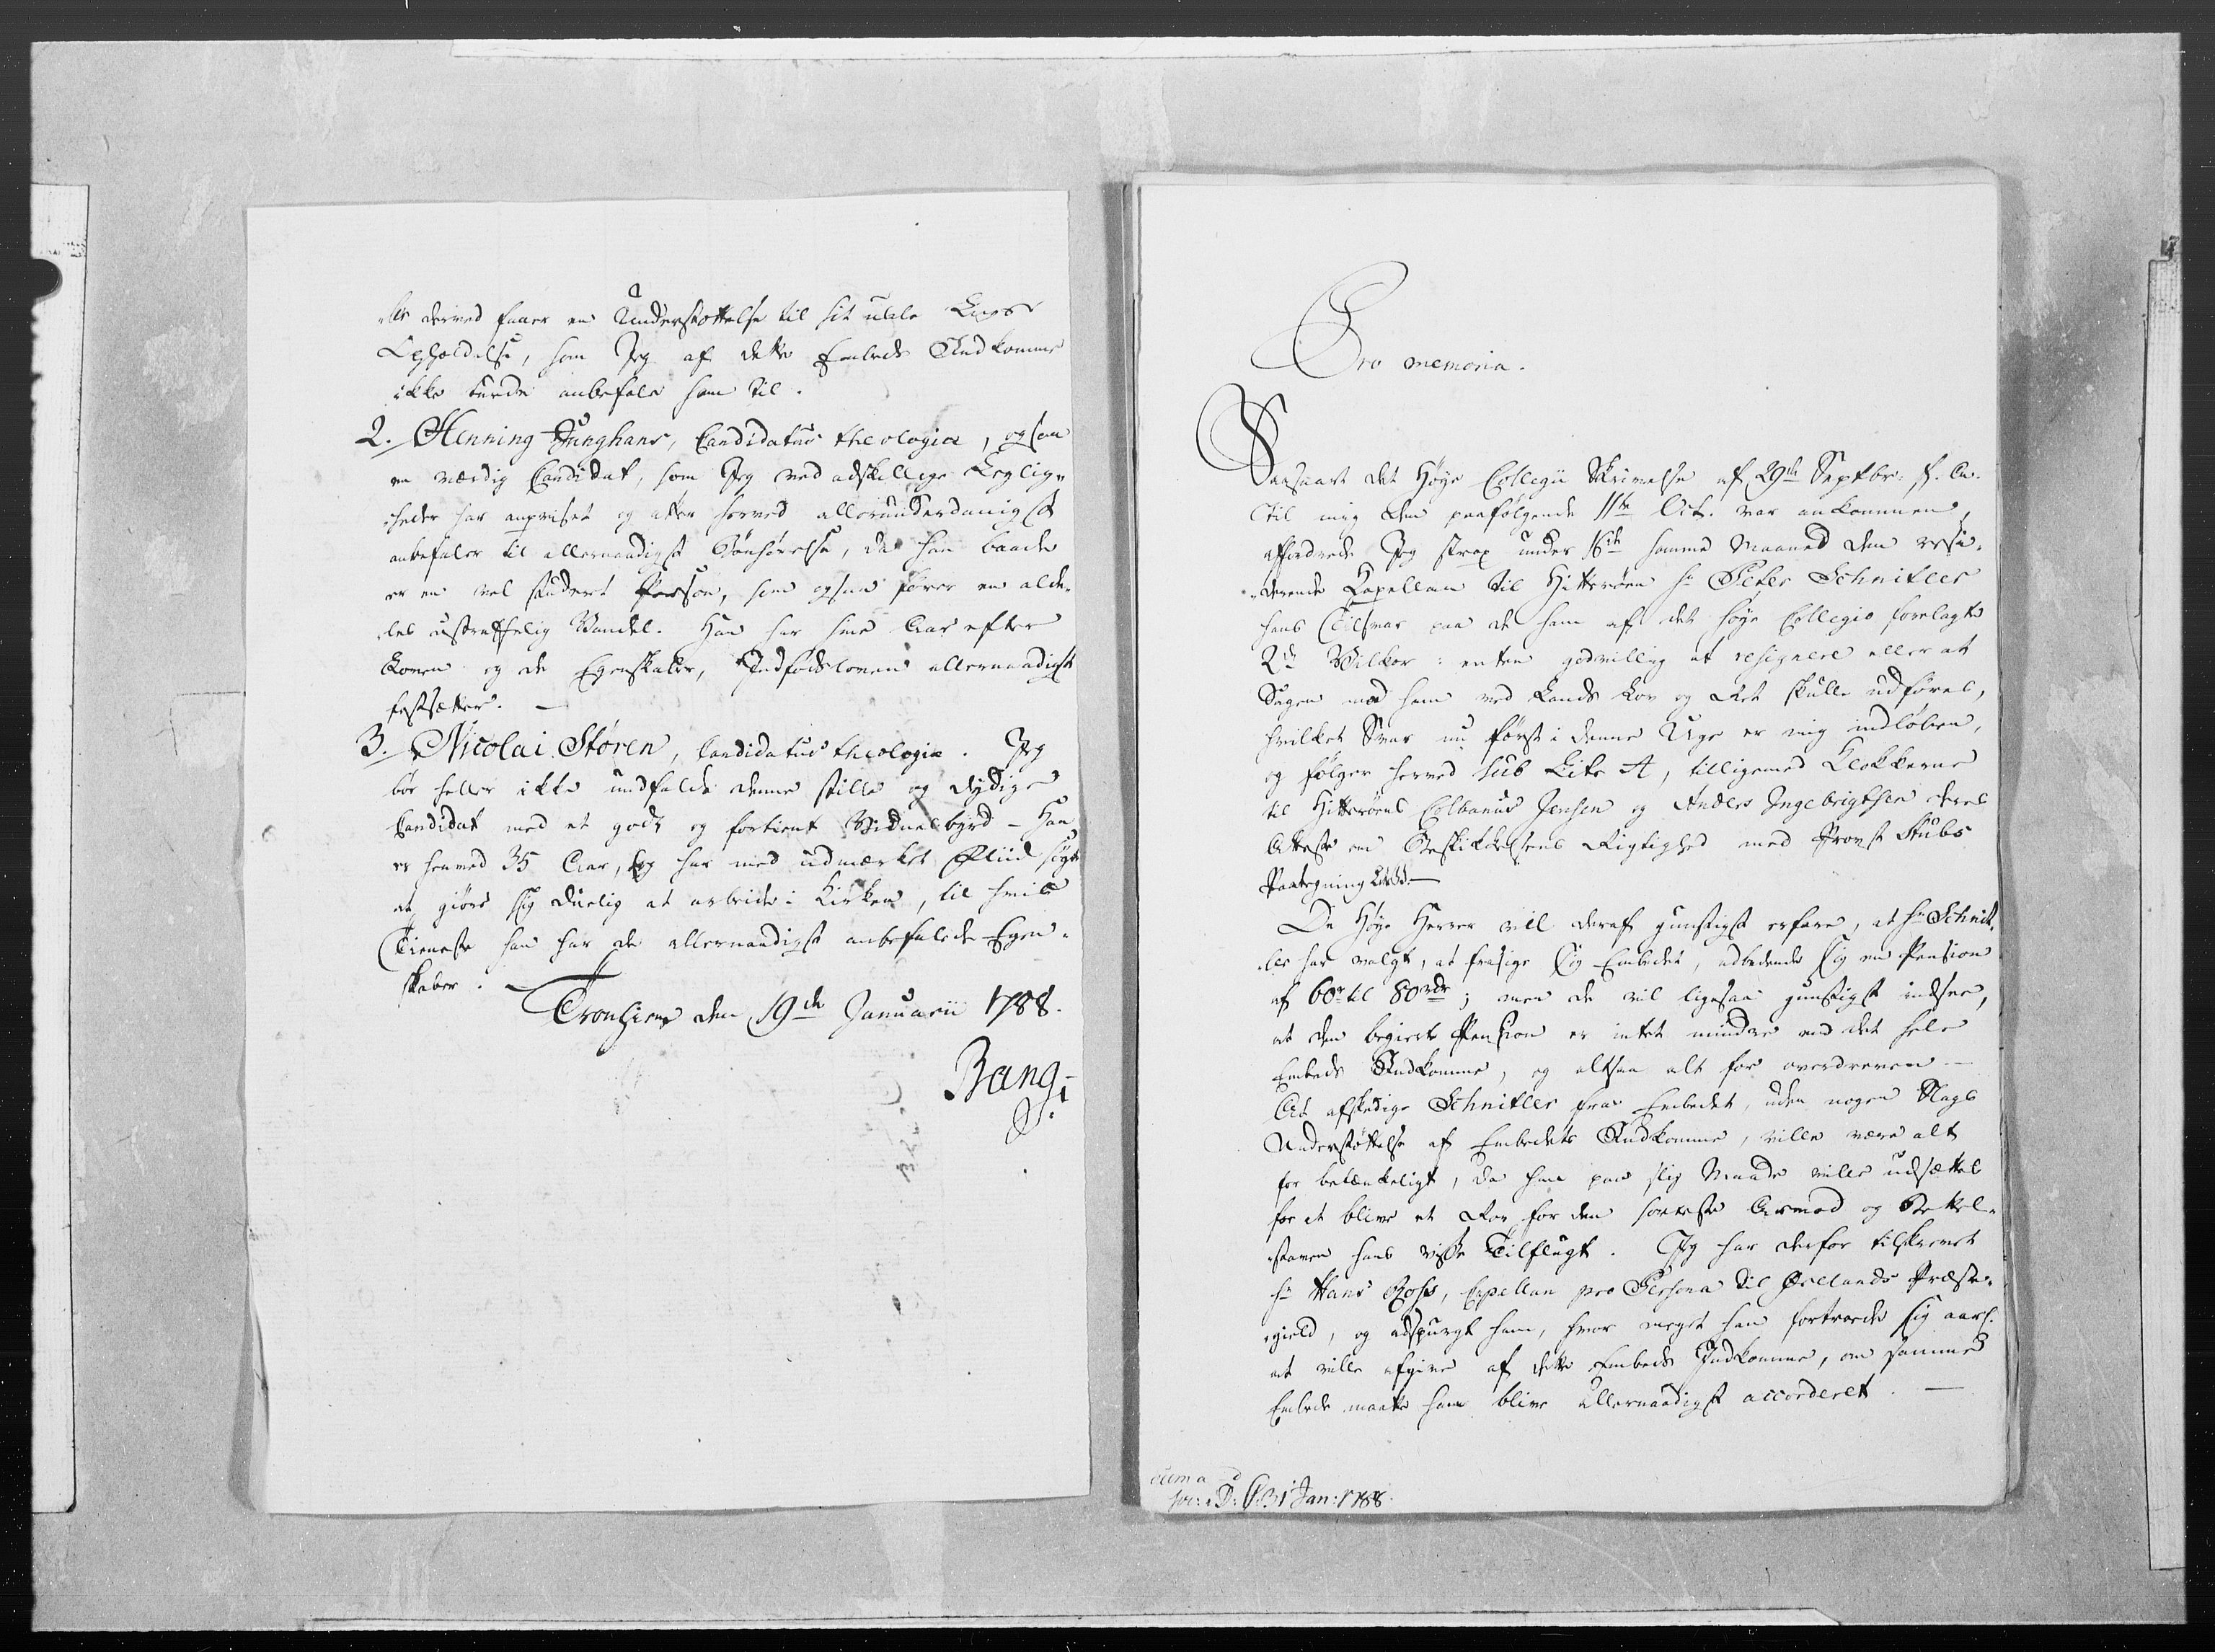 „ler derved faaer en Understøttelse til sit usle Livs
Ophooldelse, som Jeg af dette Embeds Indkomme
ikke turde anbefale ham til.
2. Henning Junghans, Candidatus theologiæ, ogsaa
en værdig Candidat, som Jeg ved adskellige Leylig„
„heder har anpriset og atter herved allerunderdanigst
anbefaler til allernaadigst Bønhørelse, da han baade
er en vel studeret Person, som ogsaa fører en alde„
„les ustraffelig Vandel. Han har sine Aar efter
Loven og de Egenskaber, Indfødsloven allernaadigst
fastsætter. —
3. Nicolai Stören, Candidatus theologiæ. Jeg
bør heller ikke undfalde denne stille og dydige
Candidat med et godt og fortient Vidnesbyrd – Han
er henved 35 Aar, og har med udmærket Fliid søgt
at giøre sig duelig at arbeide i Kirken, til hvis
Tieneste han har de allernaadigst anbefalede Egen„
skaber. —
Tronhiem den 19de Januarii 1788.
Bang
Pro memoria.
Saasnart det Høye Collegii Skrivelse af 29de Septbr. f. A.
til mig den paafølgende 11te Oct. var ankommen,
affordrede Jeg strax under 16de samme Maaned den resi„
„derende Kapellan til Hitterøen Hr Peter Schnitler
hans Tilsvar paa de ham af det høye Collegio forelagte
2de Vilkor: enten godvillig at resignere eller at
Sagen mod ham ved Lands Lov og Ret skulle udføres,
hvilket Svar nu først i denne Uge er mig indløben,
og følger herved sub Litr A, tilligemed Klokkerne
til Hitterøens Albanus Jensen og Anders Ingebrigtsen deres
Atteste om Beskikkelsens Rigtighed med Provst Stubs
Paategning
De Høye Herrer vil deraf gunstigst erfare, at Hr Schnit„
„ler har valgt, at frasige sig Embedet, udbedende sig en Pension
af 60 til 80 rdr; men de vil ligesaa gunstigst indsee,
at den begierte Pension er intet mindre end det hele
Embeds Indkomme, og altsaa alt for overdreven —
At afskedige Schnitler fra Embedet, uden nogen Slags
Understøttelse af Embedets Indkomme, ville være alt
for betænkeligt, da han paa slig Maade ville udsættes
for at blive et Rov for den sorteste Armod og Bettel„
„staven hans visse Tilflugt. Jeg har derfor tilskrevet
Hr Hans Rohs, Capellan pro Persona til Ørelands Præste„
„gield, og adspurgt ham, hvor meget han fortroede sig aarl.
at ville afgive af dette Embeds Indkomme, om samme
Embede maatte ham blive allernaadigst accorderet. —
31 Jan: 1788.